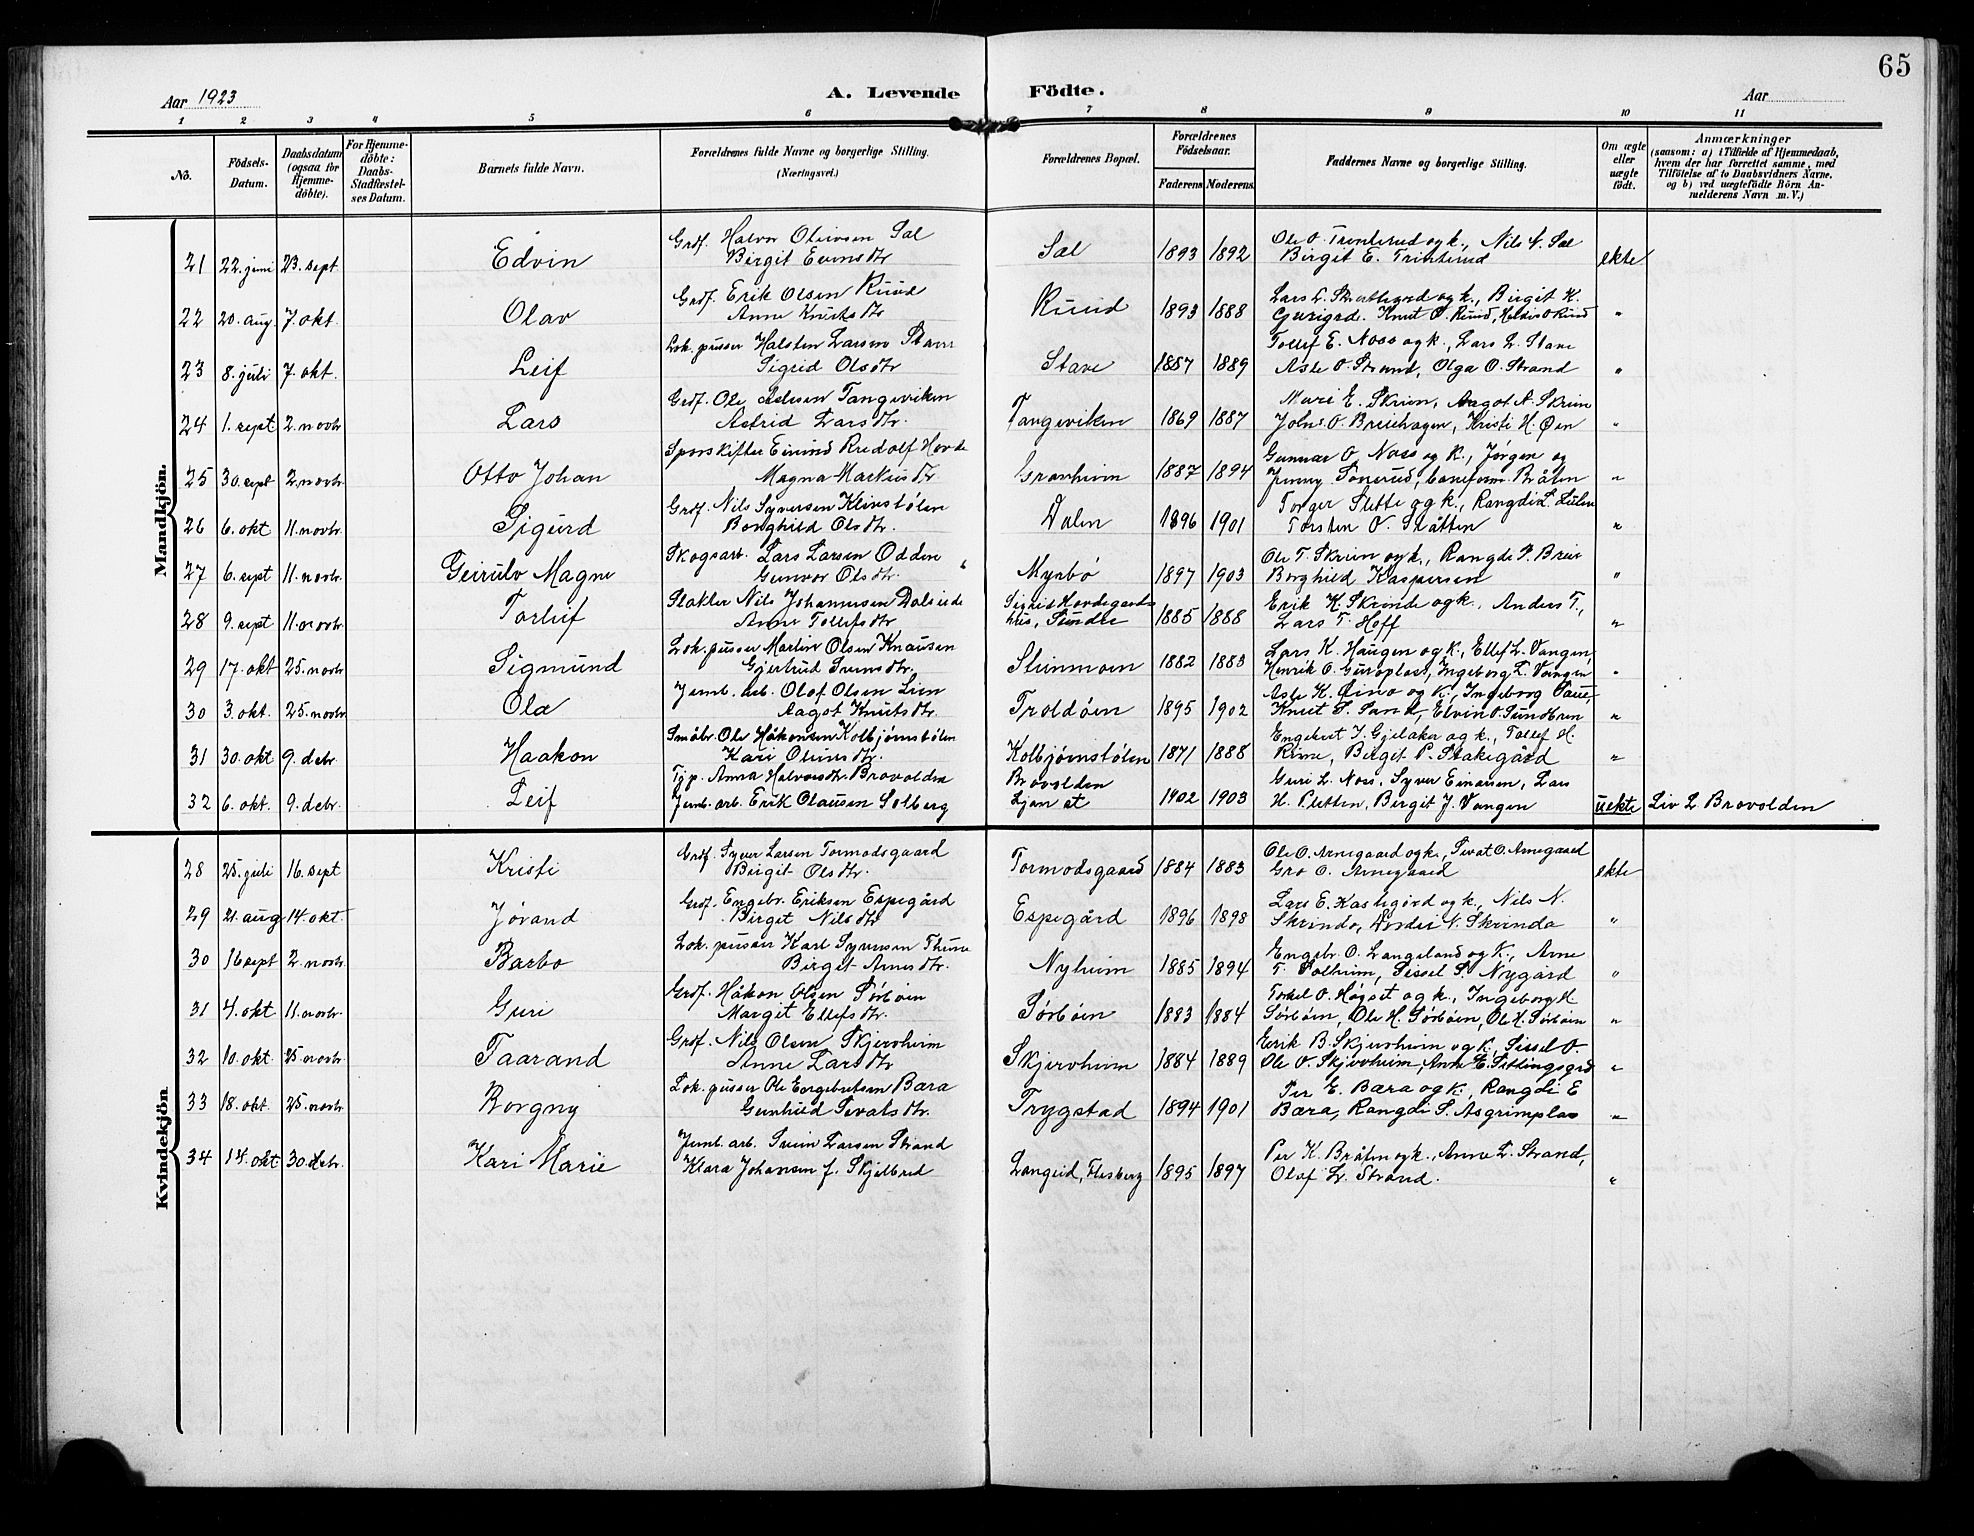 65
Aar 1923
A. Levende Födte.
Aar
1 2 3 4 5 6 7 8 9 10 11
No.
Födsels-Datum.
Daabsdatum (ogsaa for Hjemme-döbte).
For Hjemme-döbte: Daabs-Stadfæstel-ses Datum.
Barnets fulde Navn.
Forældrenes fulde Navne og borgerlige Stilling. (Næringsvei.)
Forældrenes Bopæl.
Forældrenes Födselsaar.
Faderens. Moderens.
Faddernes Navne og borgerlige Stilling.
Om ægte eller uægte födt.
Anmærkninger
(saasom: a) i Tilfælde af Hjemmedaab,
hvem der har forrettet samme, med
Tilföielse af to Daabsvidners Navne,
og b) ved uægtefödte Börn An-
melderens Navn m. V.)
Mandkjön.
Grdf. Halvor Oleivsen Sal Ole O. Trinterud og k., Nils N. Sal
21 22. juni 23. sept. Edvin Birgit Evensdtr Sal 1893 1892 Birgit E. Trinterud ekte
Grdf. Erik Olsen Ruud Lars L. og k., Birgit K.
22 20. aug. 7. okt. Olav Anne Knutsdtr Ruud 1893 1888 Knut O. Ruud, "
Lok. pusser Halsten Larsen Stave Tollef E. Noss og k., Lars L. Stave
23 8. juli 7. okt. Leif Sigrid Olsdtr Stave 1887 1889 Asle O. Strand, Olga O. Strand "
Grdf. Ole Tangeviken Mari E. Skrim, Aagot A. Skrim
24 1. sept 2. novbr Lars Astrid Larsdtr. Tangeviken 1869 1887 John O. Breiehagen, Kristi H. Øen "
Sporskifter Eivind Rudolf Hovde Gunnar O. Noss og k., Jørgen og
25 30. sept 2. novbr. Otto Johan Magna Markusdtr Granheim 1887 1894 Jenny Tonerud, Bråten "
Grdf. Nils Syversen Klinstølen Torger Slette og k., Rangdi L.
26 6. okt 11. novbr. Sigurd Borghild Olsdtr. Dalen 1896 1901 Torsten O. Slåtten "
Skogsarb. Lars Larsen Odden Ole T. Skrim og k., Rangdi
27 6. sept 11. novbr. Geirulv Magne Gunvor Olsdtr. Myrbø 1897 1903 Borghild Kaspersen "
Slakter Nils Johannesen Sigrid Hovdegaards Erik K. Skrinde og k., Anders T.,
28 9. sept 11. novbr. Torleif Anne Tollefsdtr hus, Sundre 1885 1888 Lars T. Hoff "
Lok. pusser Martin Olsen Knausen Lars K. Haugen og k., Ellef L. Vangen,
29 17. okt 25. novbr. Sigmund Gjertrud Svensdtr. Steinmoen 1882 1883 Henrik O. Guroplass, Ingeborg L. Vangen "
Jernb. arb. Olof Olsen Lien Asle K. og k., Ingeborg
30 3. okt. 25. novbr. Ola Aagot Knutsdtr. Troldøien 1895 1902 Knut S. Sand, Elvin O. Sundbren "
Småbr. Ole Håkonsen Kolbjørnstølen Engebret T. Gjelaker og k., Tollef H.
31 30. okt 9. debr. Haakon Kari Oleivsdtr. Kolbjørnstølen 1871 1888 Rime, Birgit P. Stakegård "
Tjp. Anna Halvorsdtr. Brovolden Brovolden Guri L. Noss, Syver Einarsen, Lars
32 6. okt. 9. debr. Leif Jernb. arb. Erik Olausen Solberg 1902 1903 H. Pletten, Birgit J. Vangen uekte Liv L. Brovolden
Kvindekjön
Grdf. Syver Larsen Tormodsgaard Ole O. Arnegaard og k., Sivat O. Arnegaard
28 25. juli 16. sept Kristi Birgit Olsdtr. Tormodsgaard 1884 1883 Gro O. Arnegaard ekte
Grdf. Engebr. Eriksen Espegård Lars E. Kaslegård og k., Nils N.
29 21. aug 14. okt. Jørand Birget Nilsdtr Espegård 1896 1898 Skrindo, N. Skrindo "
Lok. pusser Karl Syversen Thune Engebr. O. Langeland og k., Arne
30 16 sept 2. novbr. Barbo Birget Arnesdtr. Nyheim 1885 1894 T. Solheim, Sissel S. Nygård "
Grdf. Håkon Olsen Sørbøen Torkel O. Høgset og k., Ingeborg H.
31 4. okt 11. novbr. Guri Margit Ellefsdtr. Sørbøen 1883 1884 Sørbøen, Ole H. Sørbøen, Ole K. Sørbøen "
Grdf. Nils Olsen Skjervheim Eirik B. Skjervheim og k., Sissel O.
32 10. okt 25. novbr. Taarand Anne Larsdtr Skjervheim 1884 1889 Ole O. Skjervheim, Anne E. "
Lok. pusser Ole Engebretsen Bæra Per E. Bæra og k., Rangdi E
33 18. okt. 25. novbr. Borgny Gunhild Sivatsdtr. Trygstad 1894 1901 Bæra, Rangdi S. Asgrimplas "
Jernb. arb. Svein Larsen Strand Per K. Bråten og k., Anne L. Strand,
34 14. okt 30. debr. Kari Marie Klara Johansen f. Skjelbred Langeid, Flesberg 1895 1897 Olaf L. Strand. "